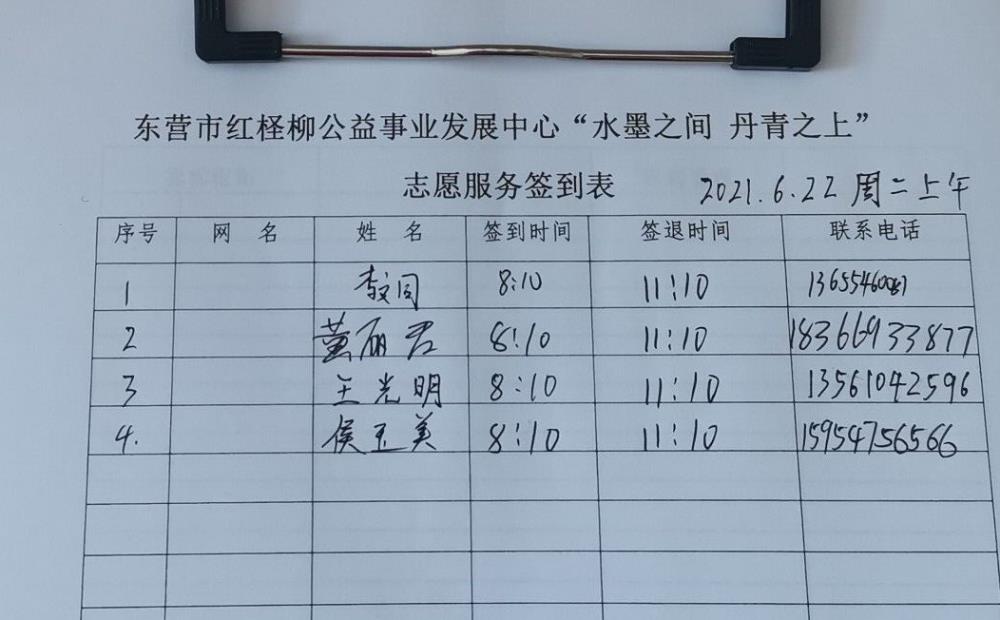 东营市红柽柳公益事业发展中心“水墨之间 丹青之上”
志愿服务签到表 2021.6.22 周二上午
序号 网 名 姓 名 签到时间 签退时间 联系电话
1 8:10 11:10
2 黄丽君 8:10 11:10 18366933877
3 王光明 8:10 11:10 13561042596
4. 侯玉美 8:10 11:10 15954756566